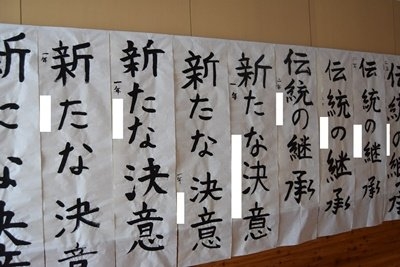 伝統の継承
伝統の継承
伝統の継承
伝統の継承
新たな決意
一年
新たな決意
新たな決意
一年
新たな決意
一年
新たな決意